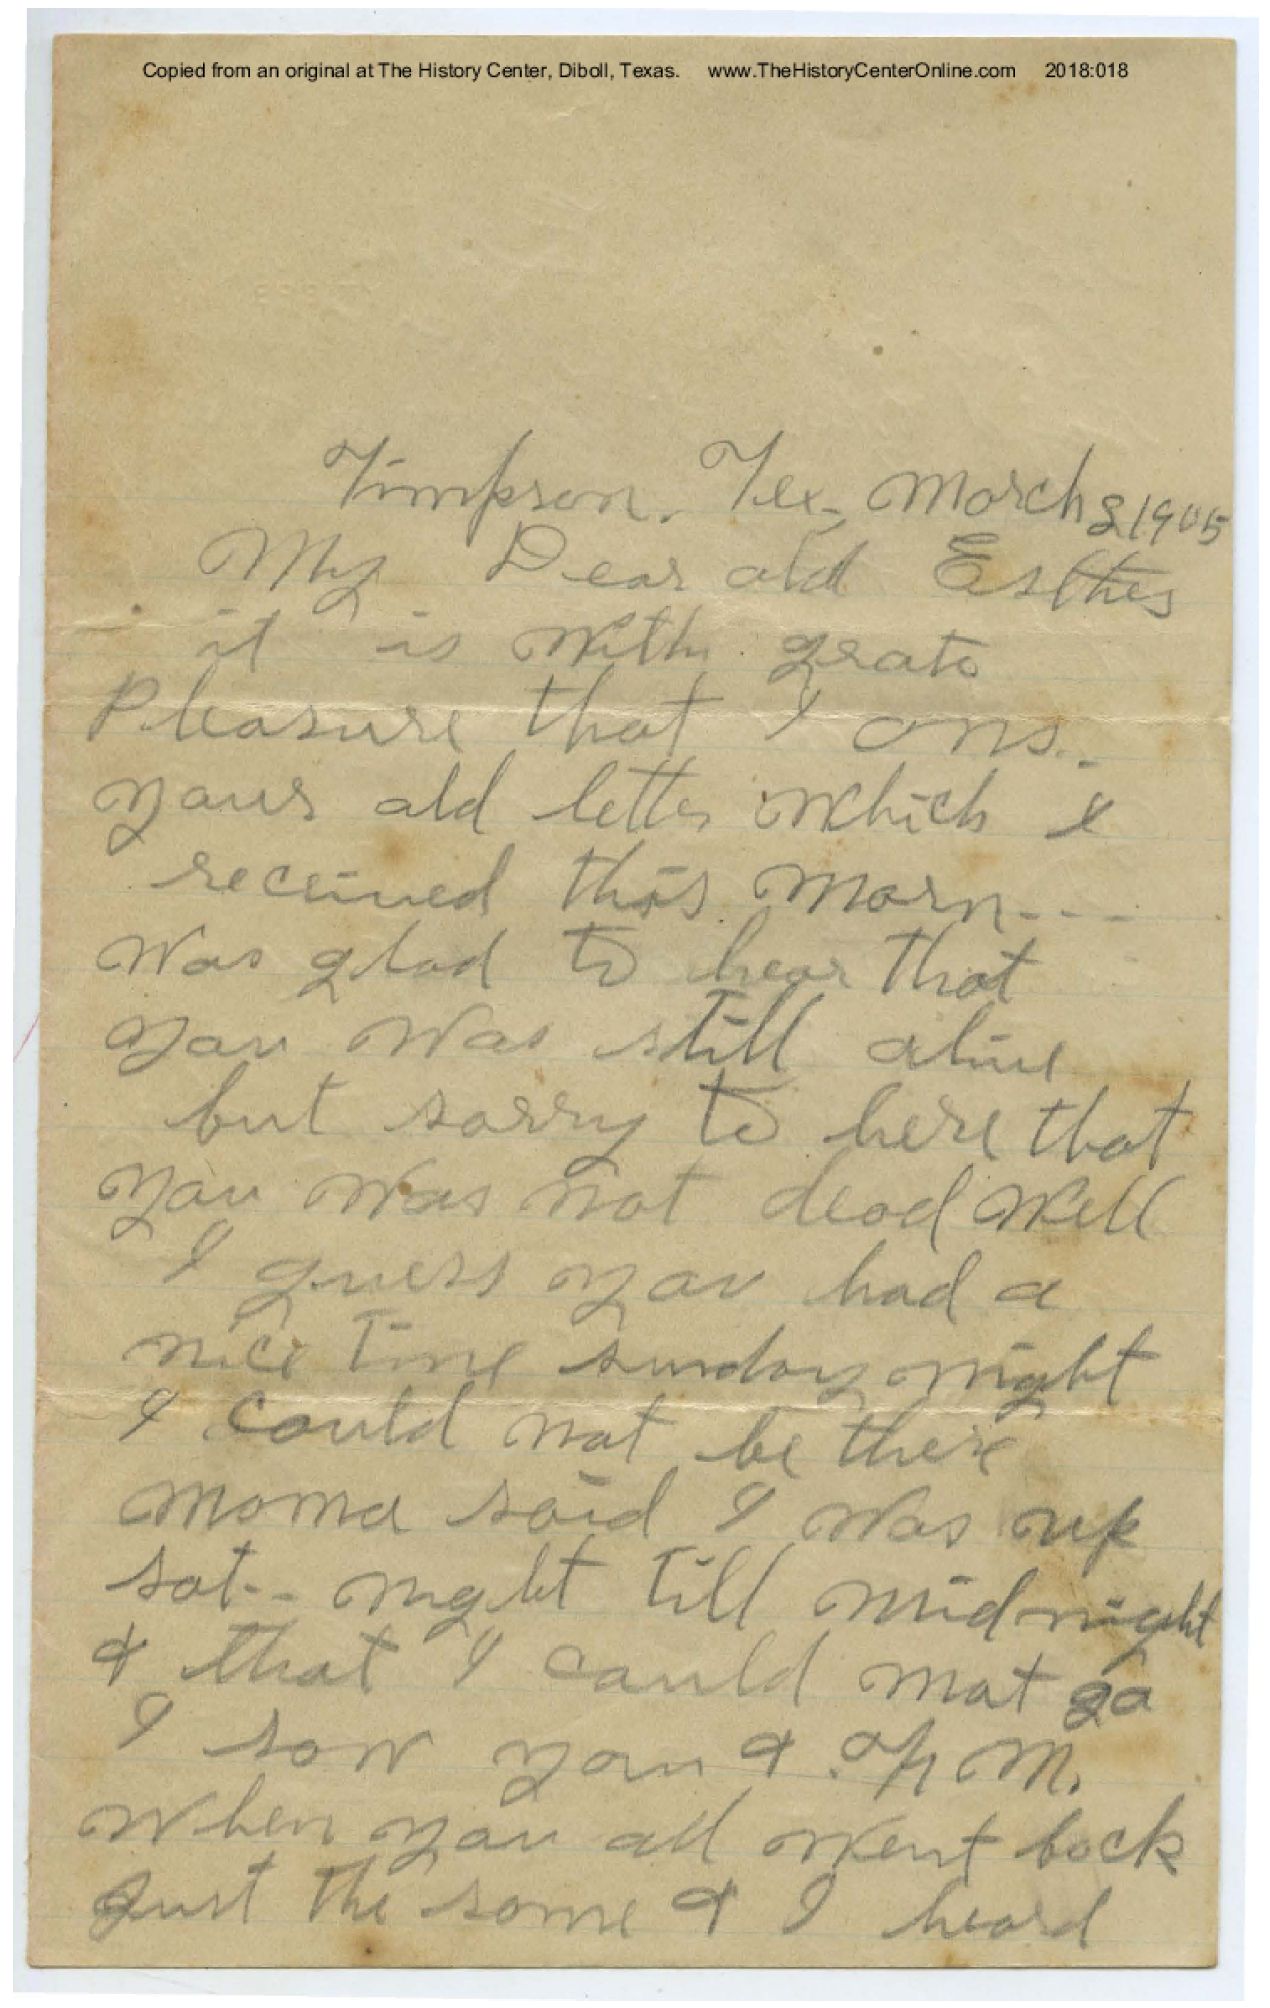 Copied from an original at The History Center, Diboll, Texas. www.TheHistoryCenterOnline.com 2018:018
Timpson. Tex, March 8 1905
My Dear old Esther
it is with grate
Pleasure that I ans..
your old letter which I
received this morn---
Was glad to hear that
you was still alive
but sorry to here that
you was not dead Well
I guess you had a
nice time sunday night
I could not be there
moma said I was up
sat-- night till midnight
& that I could not go
I saw you & M.
When you all went back
Just the same & I heard